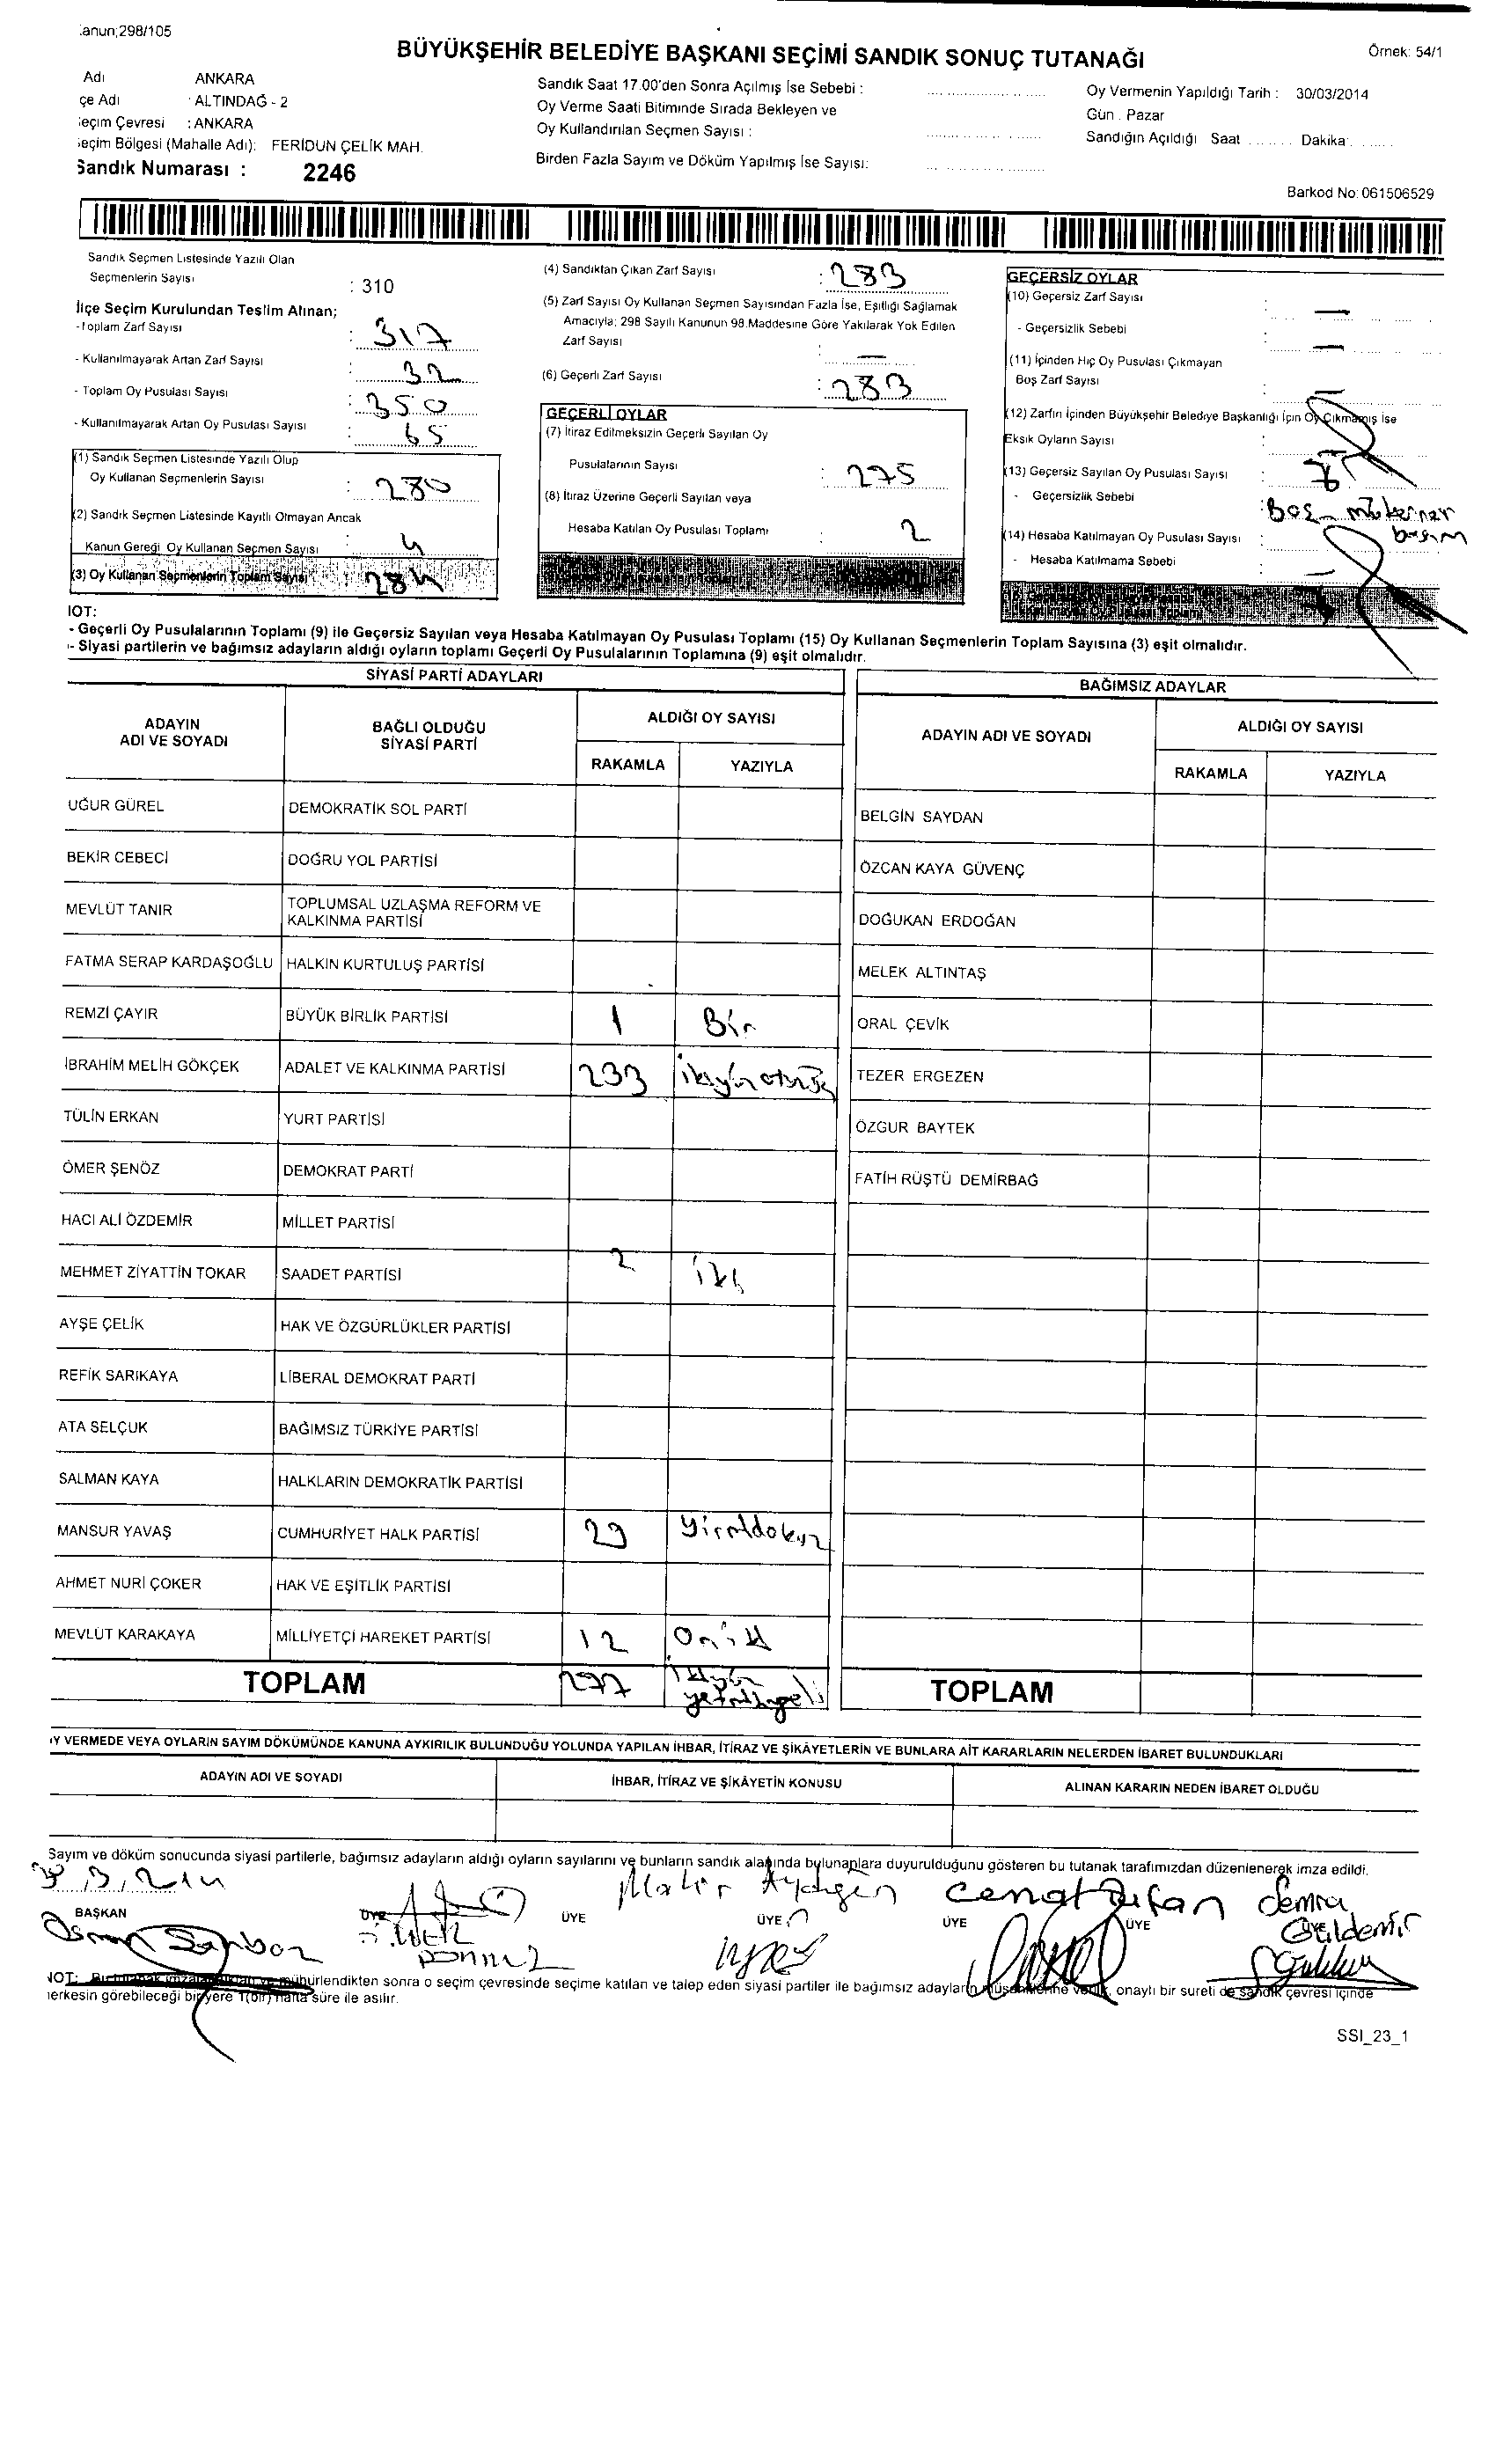 anun;298/105
BÜYÜKŞEHİR BELEDİYE BAŞKANI SEÇİMİ SANDIK SONUÇ TUTANAĞI
Örnek: 54/1
Adı ANKARA
çe Adı : ALTINDAĞ - 2
eçim Çevresi : ANKARA
eçim Bölgesi (Mahalle Adı): FERİDUN ÇELİK MAH.
Sandık Numarası : 2246
Sandık Saat 17.00'den Sonra Açılmış İse Sebebi :
Oy Verme Saati Bitiminde Sırada Bekleyen ve
Oy Kullandırılan Seçmen Sayısı :
Birden Fazla Sayım ve Döküm Yapılmış İse Sayısı:
Oy Vermenin Yapıldığı Tarih : 30/03/2014
Gün . Pazar
Sandığın Açıldığı Saat ........ Dakika: .......
Barkod No: 061506529
Sandık Seçmen Listesinde Yazılı Olan
Seçmenlerin Sayısı : 310
İlçe Seçim Kurulundan Teslim Alınan;
-Toplam Zarf Sayısı : 317
- Kullanılmayarak Artan Zarf Sayısı : 32
- Toplam Oy Pusulası Sayısı : 350
- Kullanılmayarak Artan Oy Pusulası Sayısı : 65
(1) Sandık Seçmen Listesinde Yazılı Olup
Oy Kullanan Seçmenlerin Sayısı : 280
(2) Sandık Seçmen Listesinde Kayıtlı Olmayan Ancak
Kanun Gereği Oy Kullanan Seçmen Sayısı : 4
(3) Oy Kullanan Seçmenlerin Toplam Sayısı : 284
(4) Sandıktan Çıkan Zarf Sayısı : 283
(5) Zarf Sayısı Oy Kullanan Seçmen Sayısından Fazla İse, Eşitliği Sağlamak
Amacıyla; 298 Sayılı Kanunun 98.Maddesine Göre Yakılarak Yok Edilen
Zarf Sayısı : —
(6) Geçerli Zarf Sayısı : 283
GEÇERLİ OYLAR
(7) İtiraz Edilmeksizin Geçerli Sayılan Oy
Pusulalarının Sayısı : 275
(8) İtiraz Üzerine Geçerli Sayılan veya
Hesaba Katılan Oy Pusulası Toplamı : 2
GEÇERSİZ OYLAR
(10) Geçersiz Zarf Sayısı : —
- Geçersizlik Sebebi : —
(11) İçinden Hiç Oy Pusulası Çıkmayan
Boş Zarf Sayısı : —
(12) Zarfın İçinden Büyükşehir Belediye Başkanlığı İçin Oy Çıkmamış İse
Eksik Oyların Sayısı :
(13) Geçersiz Sayılan Oy Pusulası Sayısı :
- Geçersizlik Sebebi : Boş - mükerrer
basım
(14) Hesaba Katılmayan Oy Pusulası Sayısı :
- Hesaba Katılmama Sebebi : —
IOT:
- Geçerli Oy Pusulalarının Toplamı (9) ile Geçersiz Sayılan veya Hesaba Katılmayan Oy Pusulası Toplamı (15) Oy Kullanan Seçmenlerin Toplam Sayısına (3) eşit olmalıdır.
- Siyasi partilerin ve bağımsız adayların aldığı oyların toplamı Geçerli Oy Pusulalarının Toplamına (9) eşit olmalıdır.
SİYASİ PARTİ ADAYLARI
BAĞIMSIZ ADAYLAR
ADAYIN ADI VE SOYADI BAĞLI OLDUĞU SİYASİ PARTİ ALDIĞI OY SAYISI RAKAMLA YAZIYLA
ADAYIN ADI VE SOYADI ALDIĞI OY SAYISI RAKAMLA YAZIYLA
UĞUR GÜREL DEMOKRATİK SOL PARTİ BELGİN SAYDAN
BEKİR CEBECİ DOĞRU YOL PARTİSİ ÖZCAN KAYA GÜVENÇ
MEVLÜT TANIR TOPLUMSAL UZLAŞMA REFORM VE KALKINMA PARTİSİ DOĞUKAN ERDOĞAN
FATMA SERAP KARDAŞOĞLU HALKIN KURTULUŞ PARTİSİ MELEK ALTINTAŞ
REMZİ ÇAYIR BÜYÜK BİRLİK PARTİSİ 1 Bir ORAL ÇEVİK
İBRAHİM MELİH GÖKÇEK ADALET VE KALKINMA PARTİSİ 233 ikiyüzotuzüç TEZER ERGEZEN
TÜLİN ERKAN YURT PARTİSİ ÖZGUR BAYTEK
ÖMER ŞENÖZ DEMOKRAT PARTİ FATİH RÜŞTÜ DEMİRBAĞ
HACI ALİ ÖZDEMİR MİLLET PARTİSİ
MEHMET ZİYATTİN TOKAR SAADET PARTİSİ 2 iki
AYŞE ÇELİK HAK VE ÖZGÜRLÜKLER PARTİSİ
REFİK SARIKAYA LİBERAL DEMOKRAT PARTİ
ATA SELÇUK BAĞIMSIZ TÜRKİYE PARTİSİ
SALMAN KAYA HALKLARIN DEMOKRATİK PARTİSİ
MANSUR YAVAŞ CUMHURİYET HALK PARTİSİ 29 Yirmidokuz
AHMET NURİ ÇOKER HAK VE EŞİTLİK PARTİSİ
MEVLÜT KARAKAYA MİLLİYETÇİ HAREKET PARTİSİ 12 Oniki
TOPLAM 277 ikiyüz yetmişyedi TOPLAM
Y VERMEDE VEYA OYLARIN SAYIM DÖKÜMÜNDE KANUNA AYKIRILIK BULUNDUĞU YOLUNDA YAPILAN İHBAR, İTİRAZ VE ŞİKÂYETLERİN VE BUNLARA AİT KARARLARIN NELERDEN İBARET BULUNDUKLARI
ADAYIN ADI VE SOYADI İHBAR, İTİRAZ VE ŞİKÂYETİN KONUSU ALINAN KARARIN NEDEN İBARET OLDUĞU
Sayım ve döküm sonucunda siyasi partilerle, bağımsız adayların aldığı oyların sayılarını ve bunların sandık alanında bulunanlara duyurulduğunu gösteren bu tutanak tarafımızdan düzenlenerek imza edildi.
BAŞKAN ÜYE ÜYE ÜYE ÜYE ÜYE
NOT: Bu tutanak imzalandıktan ve mühürlendikten sonra o seçim çevresinde seçime katılan ve talep eden siyasi partiler ile bağımsız adayların müşahitlerine verilir, onaylı bir sureti de sandık çevresi içinde
erkesin görebileceği bir yere 1(bir) hafta süre ile asılır.
SSI_23_1